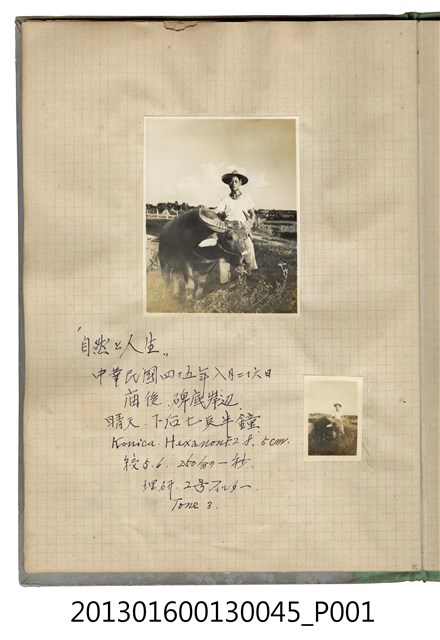 「自然と人生」
中華民國四十五年八月二十六日
庙後、碑底岸辺
晴天、下后七点半鐘
Konica Hexanon f:2.8, 5cm.
絞5.6. 250分ノ一秒.
理研. 2号フィルター.
Tone 3.
201301600130045_P001